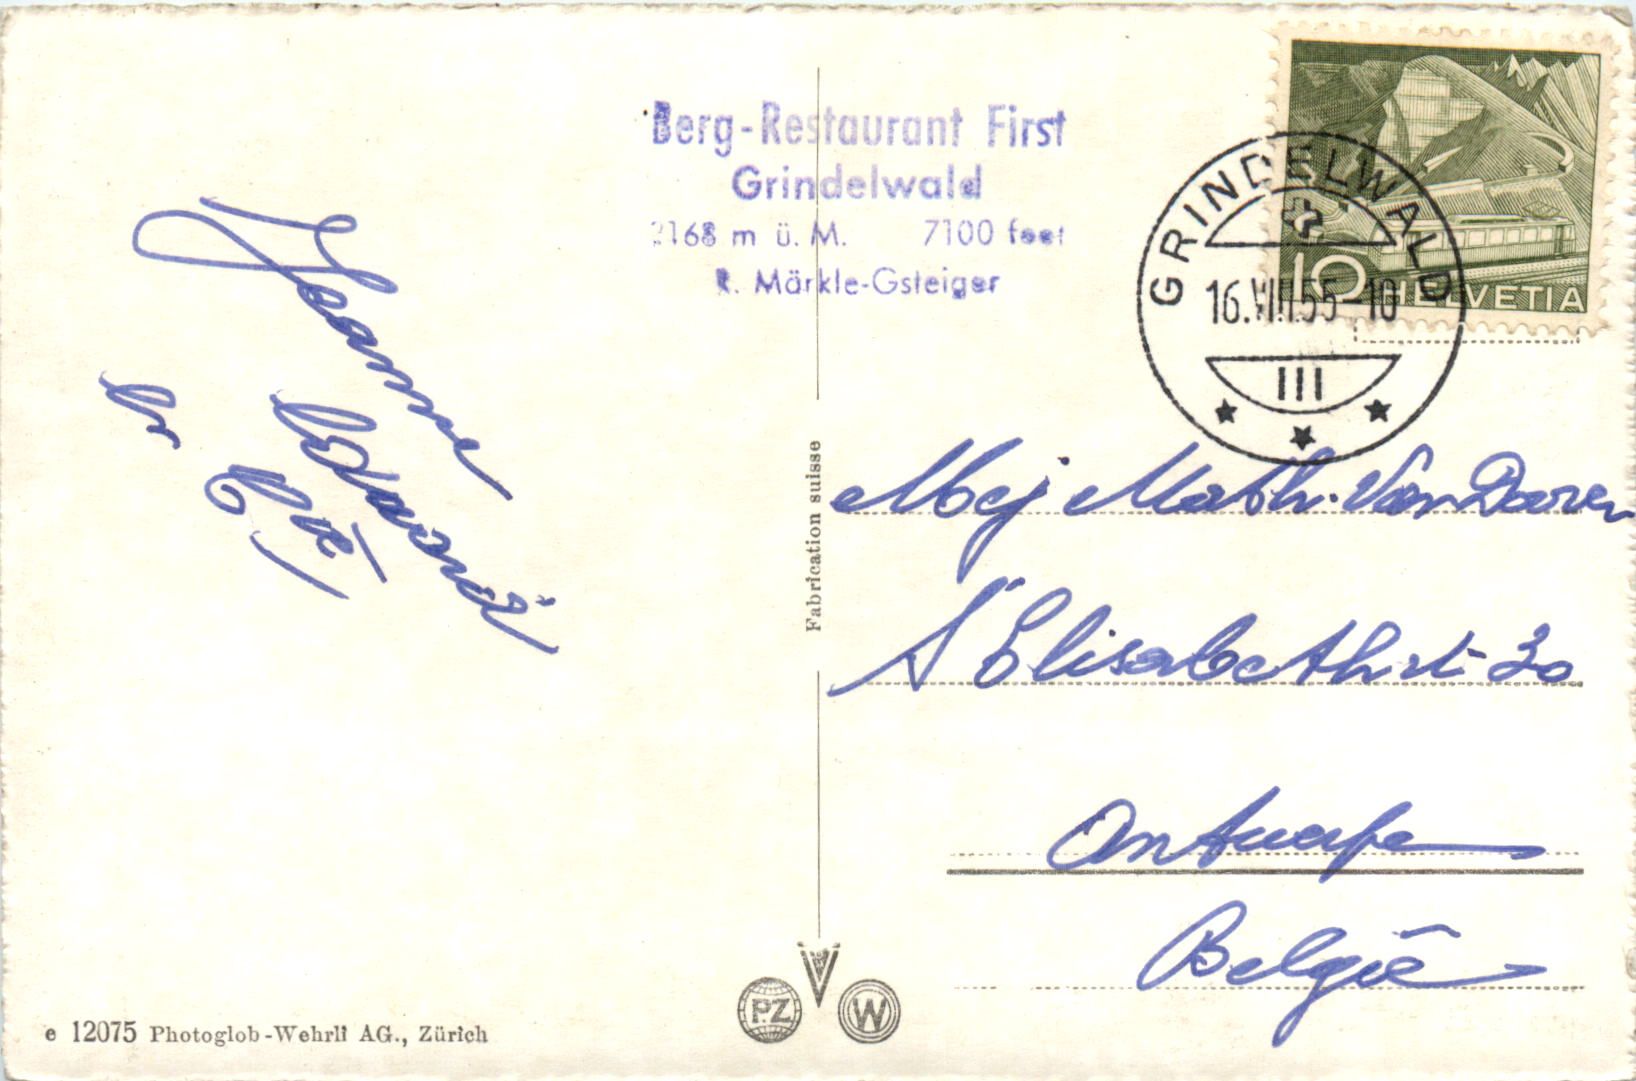 Berg-Restaurant First
Grindelwald
2168 m ü. M. 7100 feet
R. Märkle-Gsteiger
GRINDELWALD
16.VIII.55-10
III
10 HELVETIA
Jeanne
Fabrication suisse
Mej Math. Van Doren
S Elisabethst 30
Antwerpen
België
PZ
W
e 12075 Photoglob-Wehrli AG., Zürich